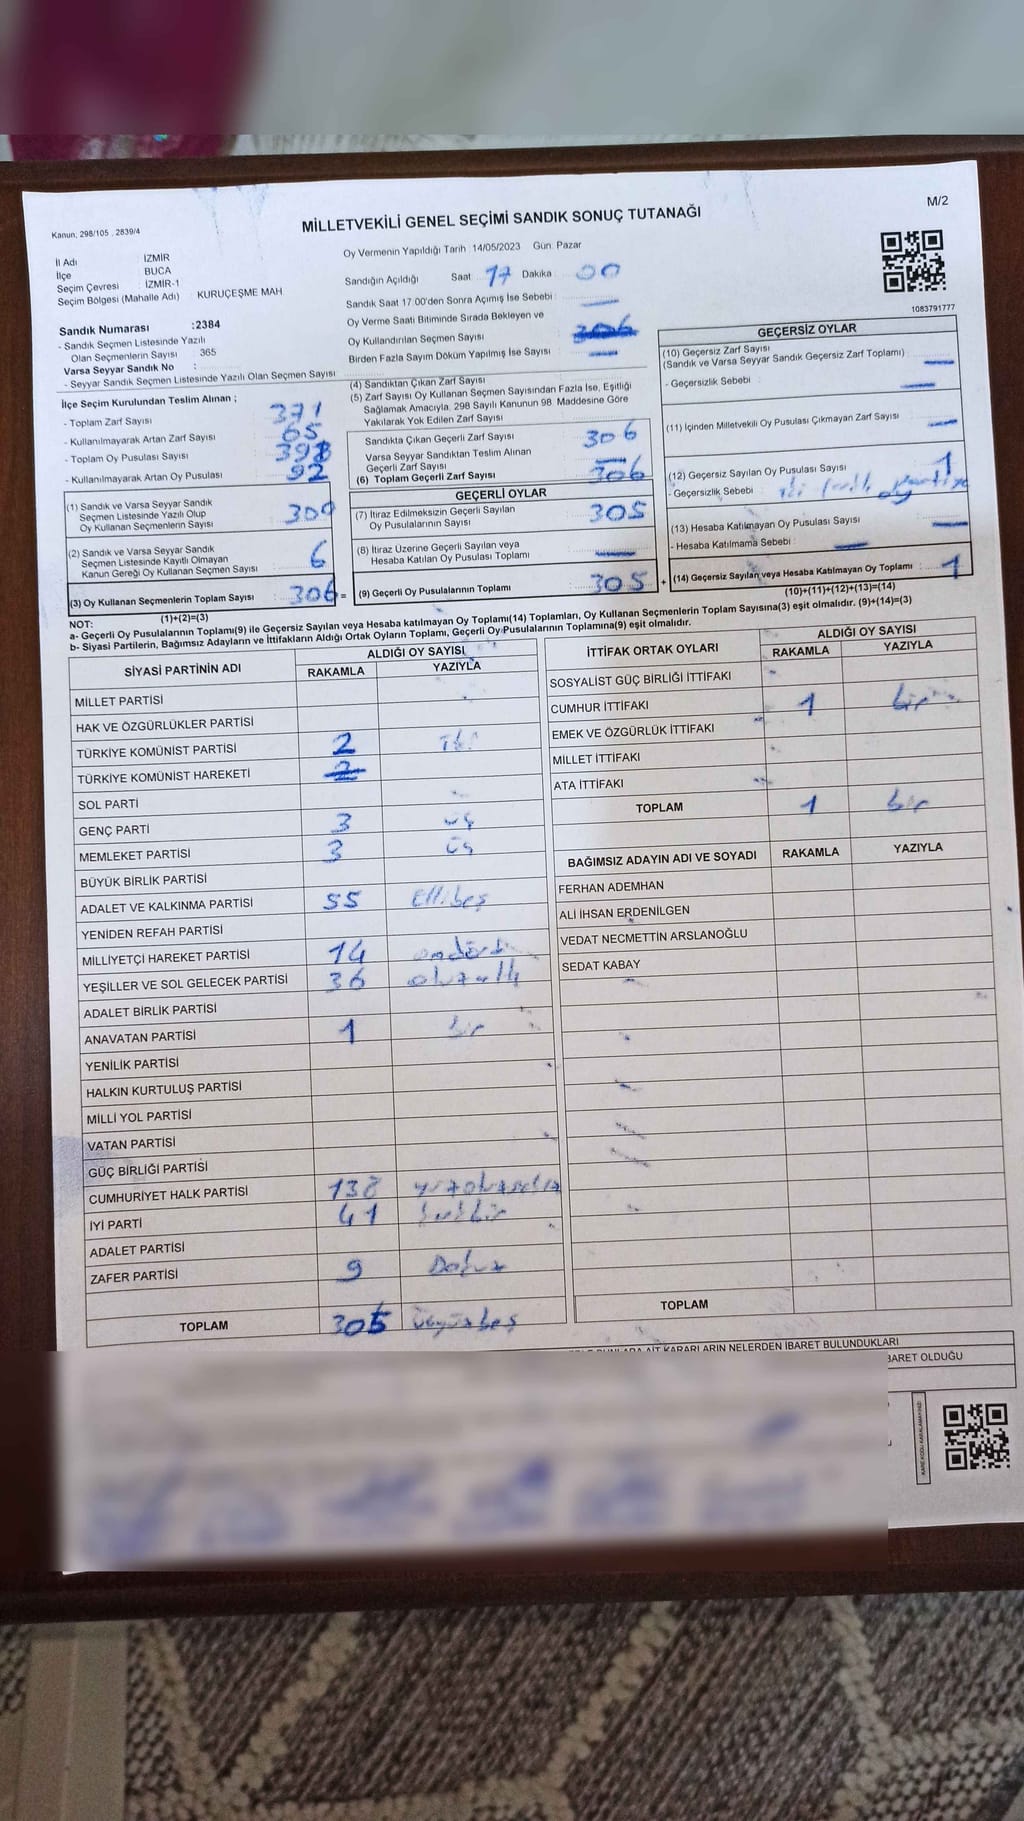 M/2
MİLLETVEKİLİ GENEL SEÇİMİ SANDIK SONUÇ TUTANAĞI
Kanun, 298/105 , 2839/4
Oy Vermenin Yapıldığı Tarih 14/05/2023 Gün: Pazar
İl Adı İZMİR
İlçe BUCA
Seçim Çevresi İZMİR-1
Seçim Bölgesi (Mahalle Adı) KURUÇEŞME MAH
Sandık Numarası :2384
- Sandık Seçmen Listesinde Yazılı
Olan Seçmenlerin Sayısı : 365
Varsa Seyyar Sandık No :
- Seyyar Sandık Seçmen Listesinde Yazılı Olan Seçmen Sayısı :
Sandığın Açıldığı Saat 17 Dakika 00
Sandık Saat 17:00'den Sonra Açımış İse Sebebi : —
Oy Verme Saati Bitiminde Sırada Bekleyen ve
Oy Kullandırılan Seçmen Sayısı 306
Birden Fazla Sayım Döküm Yapılmış İse Sayısı —
1083791777
İlçe Seçim Kurulundan Teslim Alınan ;
- Toplam Zarf Sayısı 371
- Kullanılmayarak Artan Zarf Sayısı 65
- Toplam Oy Pusulası Sayısı 398
- Kullanılmayarak Artan Oy Pusulası 92
(1) Sandık ve Varsa Seyyar Sandık
Seçmen Listesinde Yazılı Olup
Oy Kullanan Seçmenlerin Sayısı : 300
(2) Sandık ve Varsa Seyyar Sandık
Seçmen Listesinde Kayıtlı Olmayan
Kanun Gereği Oy Kullanan Seçmen Sayısı : 6
(3) Oy Kullanan Seçmenlerin Toplam Sayısı : 306 =
(1)+(2)=(3)
(4) Sandıktan Çıkan Zarf Sayısı
(5) Zarf Sayısı Oy Kullanan Seçmen Sayısından Fazla İse, Eşitliği
Sağlamak Amacıyla, 298 Sayılı Kanunun 98. Maddesine Göre
Yakılarak Yok Edilen Zarf Sayısı
Sandıkta Çıkan Geçerli Zarf Sayısı 306
Varsa Seyyar Sandıktan Teslim Alınan
Geçerli Zarf Sayısı —
(6) Toplam Geçerli Zarf Sayısı 306
GEÇERLİ OYLAR
(7) İtiraz Edilmeksizin Geçerli Sayılan
Oy Pusulalarının Sayısı : 305
(8) İtiraz Üzerine Geçerli Sayılan veya
Hesaba Katılan Oy Pusulası Toplamı : —
(9) Geçerli Oy Pusulalarının Toplamı : 305 +
GEÇERSİZ OYLAR
(10) Geçersiz Zarf Sayısı
(Sandık ve Varsa Seyyar Sandık Geçersiz Zarf Toplamı) : —
- Geçersizlik Sebebi : —
(11) İçinden Milletvekili Oy Pusulası Çıkmayan Zarf Sayısı : —
(12) Geçersiz Sayılan Oy Pusulası Sayısı : 1
- Geçersizlik Sebebi : iki farklı
(13) Hesaba Katılmayan Oy Pusulası Sayısı : —
- Hesaba Katılmama Sebebi : —
(14) Geçersiz Sayılan veya Hesaba Katılmayan Oy Toplamı : 1
(10)+(11)+(12)+(13)=(14)
NOT:
a- Geçerli Oy Pusulalarının Toplamı(9) ile Geçersiz Sayılan veya Hesaba katılmayan Oy Toplamı(14) Toplamları, Oy Kullanan Seçmenlerin Toplam Sayısına(3) eşit olmalıdır. (9)+(14)=(3)
b- Siyasi Partilerin, Bağımsız Adayların ve İttifakların Aldığı Ortak Oyların Toplamı, Geçerli Oy Pusulalarının Toplamına(9) eşit olmalıdır.
SİYASİ PARTİNİN ADI ALDIĞI OY SAYISI
RAKAMLA YAZIYLA
MİLLET PARTİSİ
HAK VE ÖZGÜRLÜKLER PARTİSİ
TÜRKİYE KOMÜNİST PARTİSİ 2 iki
TÜRKİYE KOMÜNİST HAREKETİ 2
SOL PARTİ
GENÇ PARTİ 3 üç
MEMLEKET PARTİSİ 3 üç
BÜYÜK BİRLİK PARTİSİ
ADALET VE KALKINMA PARTİSİ 55 Ellibeş
YENİDEN REFAH PARTİSİ
MİLLİYETÇİ HAREKET PARTİSİ 14 ondört
YEŞİLLER VE SOL GELECEK PARTİSİ 36 otuzaltı
ADALET BİRLİK PARTİSİ
ANAVATAN PARTİSİ 1 bir
YENİLİK PARTİSİ
HALKIN KURTULUŞ PARTİSİ
MİLLİ YOL PARTİSİ
VATAN PARTİSİ
GÜÇ BİRLİĞİ PARTİSİ
CUMHURİYET HALK PARTİSİ 138 yüzotuzsekiz
İYİ PARTİ 41 kırkbir
ADALET PARTİSİ
ZAFER PARTİSİ 9 Dokuz
TOPLAM 305 üçyüzbeş
İTTİFAK ORTAK OYLARI ALDIĞI OY SAYISI
RAKAMLA YAZIYLA
SOSYALİST GÜÇ BİRLİĞİ İTTİFAKI
CUMHUR İTTİFAKI 1 bir
EMEK VE ÖZGÜRLÜK İTTİFAKI
MİLLET İTTİFAKI
ATA İTTİFAKI
TOPLAM 1 bir
BAĞIMSIZ ADAYIN ADI VE SOYADI RAKAMLA YAZIYLA
FERHAN ADEMHAN
ALİ İHSAN ERDENİLGEN
VEDAT NECMETTİN ARSLANOĞLU
SEDAT KABAY
TOPLAM
AİT KARARLARIN NELERDEN İBARET BULUNDUKLARI
İBARET OLDUĞU